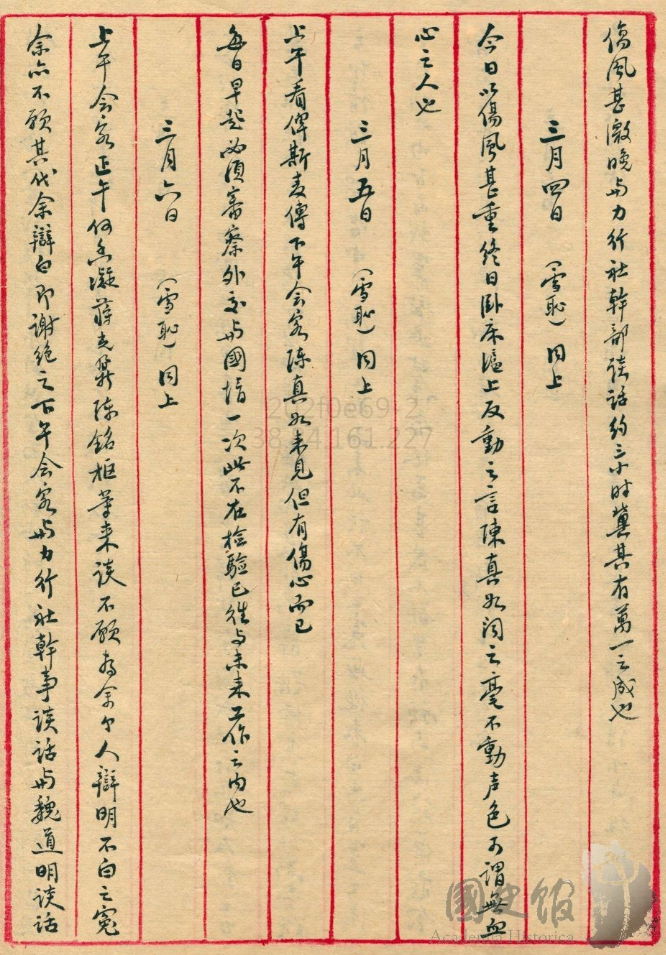 傷風甚激晚与力行社幹部談話約三小时冀其有萬一之成也
三月四日 (雪恥)同上
今日以傷風甚重終日卧床滬上反動之言陳真如闻之毫不動声色可謂無血
心之人也
三月五日 (雪恥)同上
上午看俾斯麦傳下午会客陈真如来見但有傷心而已
每日早起必須審察外交与國情一次此不在檢驗已往与未来工作之内也
三月六日 (雪恥)同上
上午会客正午何香凝蒋光鼐陈銘枢等来談不願为余个人辯明不白之冤
余亦不願其代余辯白即謝絶之下午会客与力行社幹事談話与魏道明談話
國史館
Academia Historica
202f0e69-2
38.24.161.227